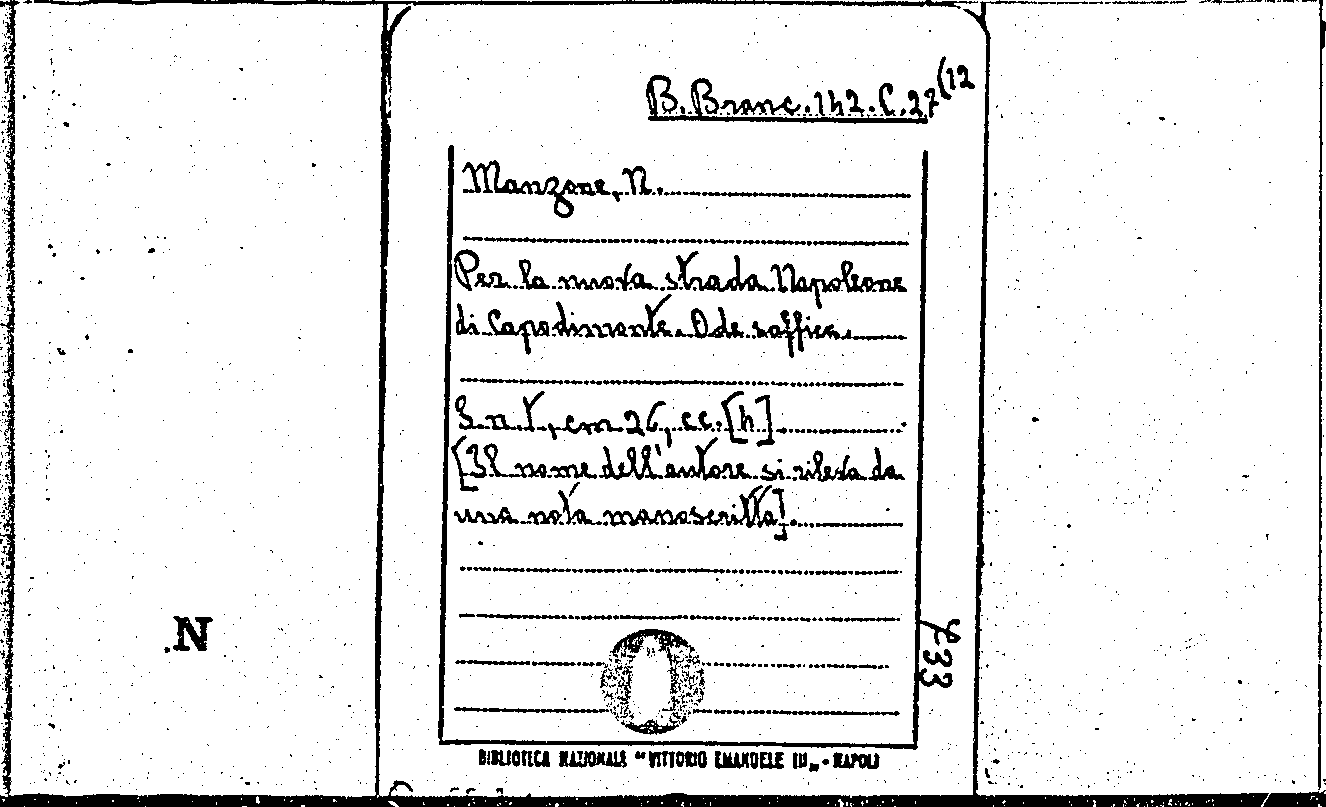 B. Branc. 142. C. 27 (12
Manzone, N.
Per la nuova strada Napoleone
di Capodimonte. Ode saffica.
S. n. t., cm 26, cc. [4].
[Il nome dell'autore si rileva da
una nota manoscritta].
N
733
BIBLIOTECA NAZIONALE "VITTORIO EMANUELE III" - NAPOLI